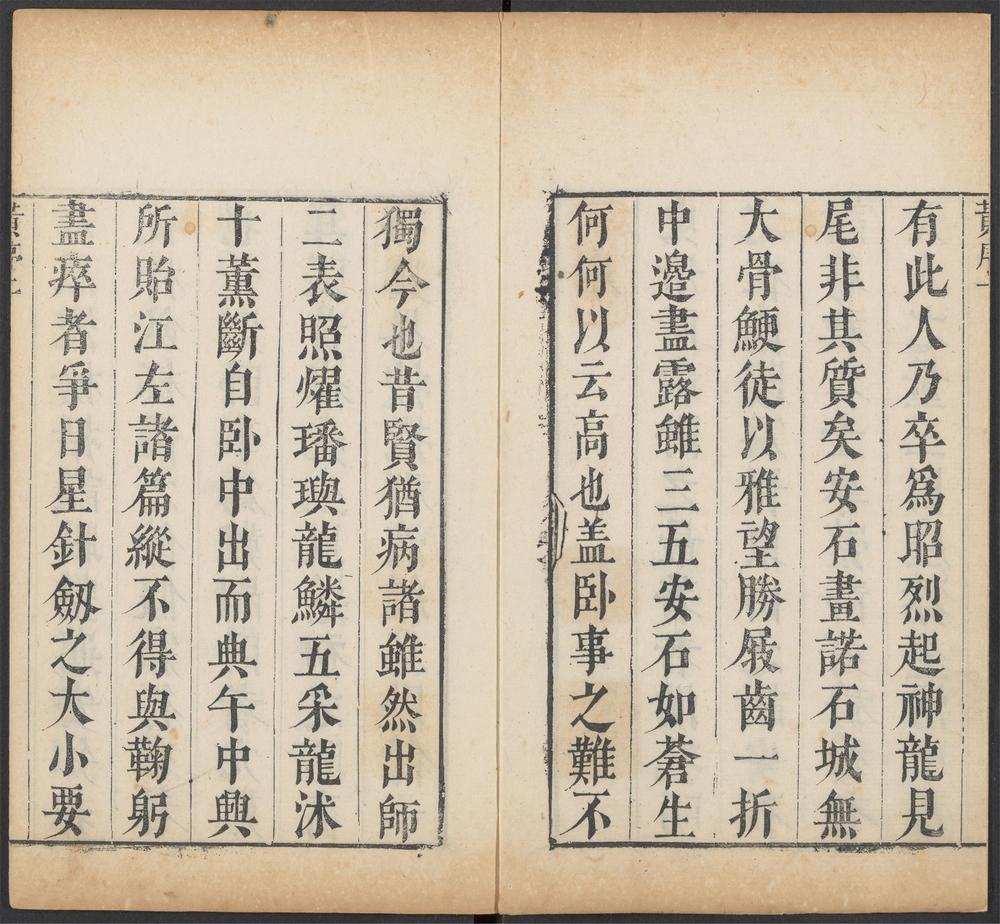 有此人乃卒爲昭烈起神龍見
尾非其質矣安石畫諾石城無
大骨鯁徒以雅望勝屐齒一折
中邉盡露雖三五安石如蒼生
何何以云高也盖卧事之難不
獨今也昔賢猶病諸雖然出師
二表照燿璠璵龍鱗五采龍沭
十薰斷自卧中出而典午中興
所貽江左諸篇縱不得與鞠躬
盡瘁者爭日星針劒之大小要